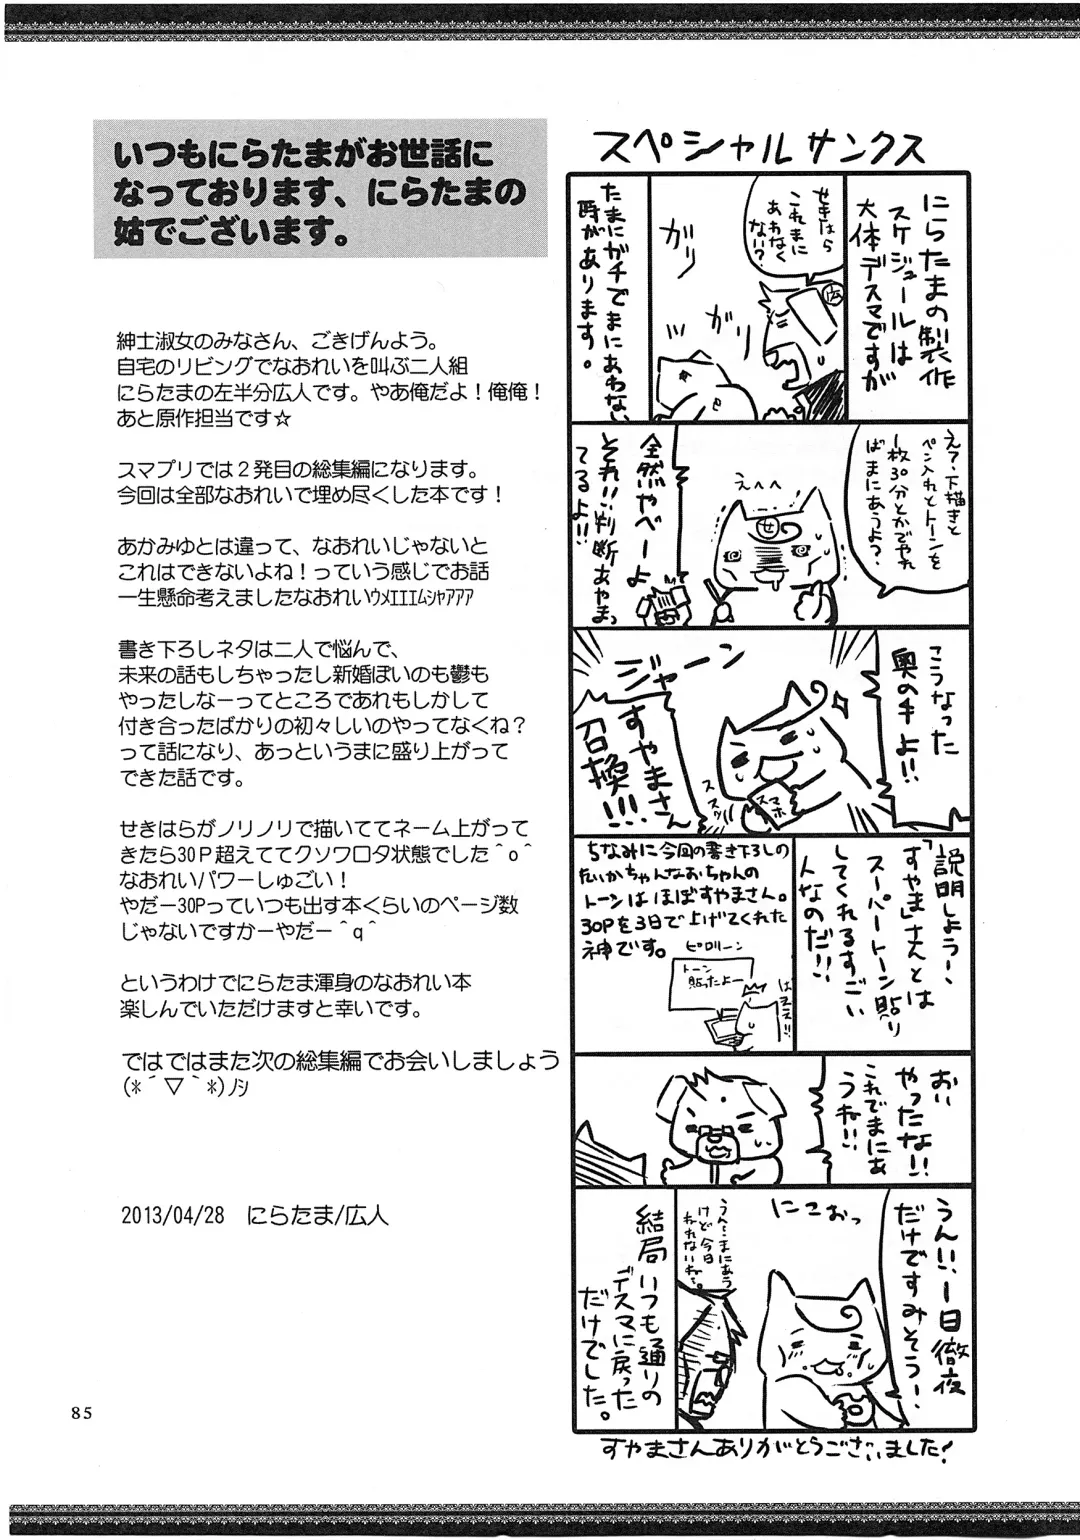 いつもにらたまがお世話に
なっております、にらたまの
姑でございます。
紳士淑女のみなさん、ごきげんよう。
自宅のリビングでなおれいを叫ぶ二人組
にらたまの左半分広人です。やあ俺だよ！俺俺！
あと原作担当です☆
スマプリでは２発目の総集編になります。
今回は全部なおれいで埋め尽くした本です！
あかみゆとは違って、なおれいじゃないと
これはできないよね！っていう感じでお話
一生懸命考えましたなおれいｳﾒｴｴｴﾑｼｬｱｱｱ
書き下ろしネタは二人で悩んで、
未来の話もしちゃったし新婚ぽいのも鬱も
やったしなーってところであれもしかして
付き合ったばかりの初々しいのやってなくね？
って話になり、あっというまに盛り上がって
できた話です。
せきはらがノリノリで描いててネーム上がって
きたら30Ｐ超えててクソワロタ状態でした＾o＾
なおれいパワーしゅごい！
やだー30Pっていつも出す本くらいのページ数
じゃないですかーやだー＾q＾
というわけでにらたま渾身のなおれい本
楽しんでいただけますと幸いです。
ではではまた次の総集編でお会いしましょう
(*´▽｀*)ﾉｼ
2013/04/28　にらたま/広人
スペシャルサンクス
にらたまの製作
スケジュールは
大体デスマですが
せきはら
これまに
あわなく
ない？
広
ガリ
ガリ
たまにガチでまにあわない
時があります。
え？、下描きと
ペン入れとトーンを
1枚30分とかでやれ
ばまにあうよ？
えへへ
せ
全然やべーよ
それ!!判断あやまっ
てるよ!!
こうなった
奥の手よ!!
ジャーン
スマホ
ススッ
すやまさん
召換!!!
説明しよう！
「すやま」さんとは
スーパートーン貼り
してくれるすごい
人なのだ!!
ちなみに今回の書き下ろしの
れいかちゃんなおちゃんの
トーンはほぼすやまさん。
30Pを3日で上げてくれた
神です。
ピロリーン
トーン
貼ったよー
おい
やったな!!
これでまにあ
うね!!
うん!!、一日徹夜
だけですみそう！
にこぉっ
うん…まにあう
けど今日
ねれないね…。
結局いつも通りの
デスマに戻った
だけでした。
すやまさんありがとうございました！
85